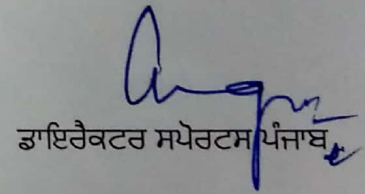 ਡਾਇਰੈਕਟਰ ਸਪੋਰਟਸ ਪੰਜਾਬ